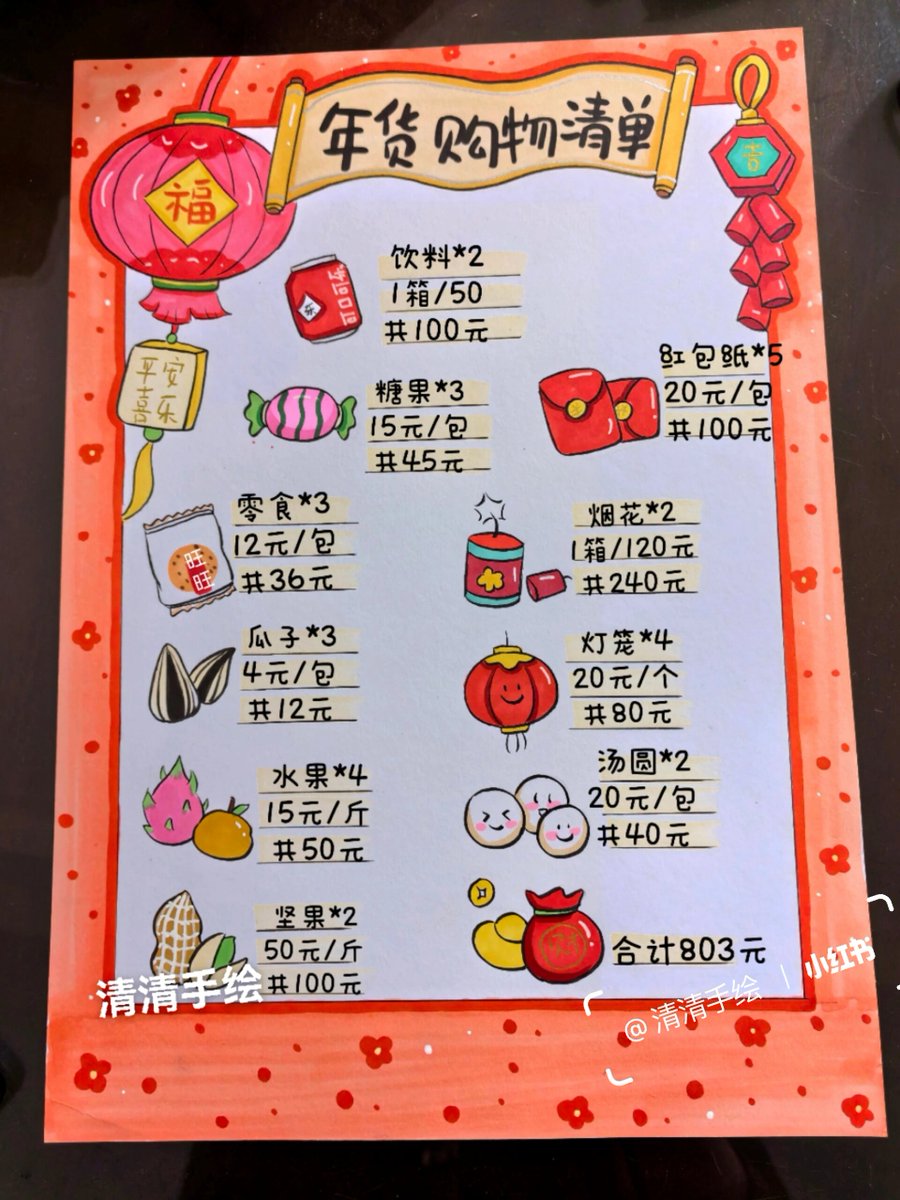 年货购物清单
福
吉
平安
喜乐
可口可乐
饮料*2
1箱/50
共100元
糖果*3
15元/包
共45元
红包纸*5
20元/包
共100元
零食*3
12元/包
共36元
旺
旺
烟花*2
1箱/120元
共240元
瓜子*3
4元/包
共12元
灯笼*4
20元/个
共80元
水果*4
15元/斤
共50元
汤圆*2
20元/包
共40元
坚果*2
50元/斤
共100元
合计803元
清清手绘
@清清手绘 | 小红书